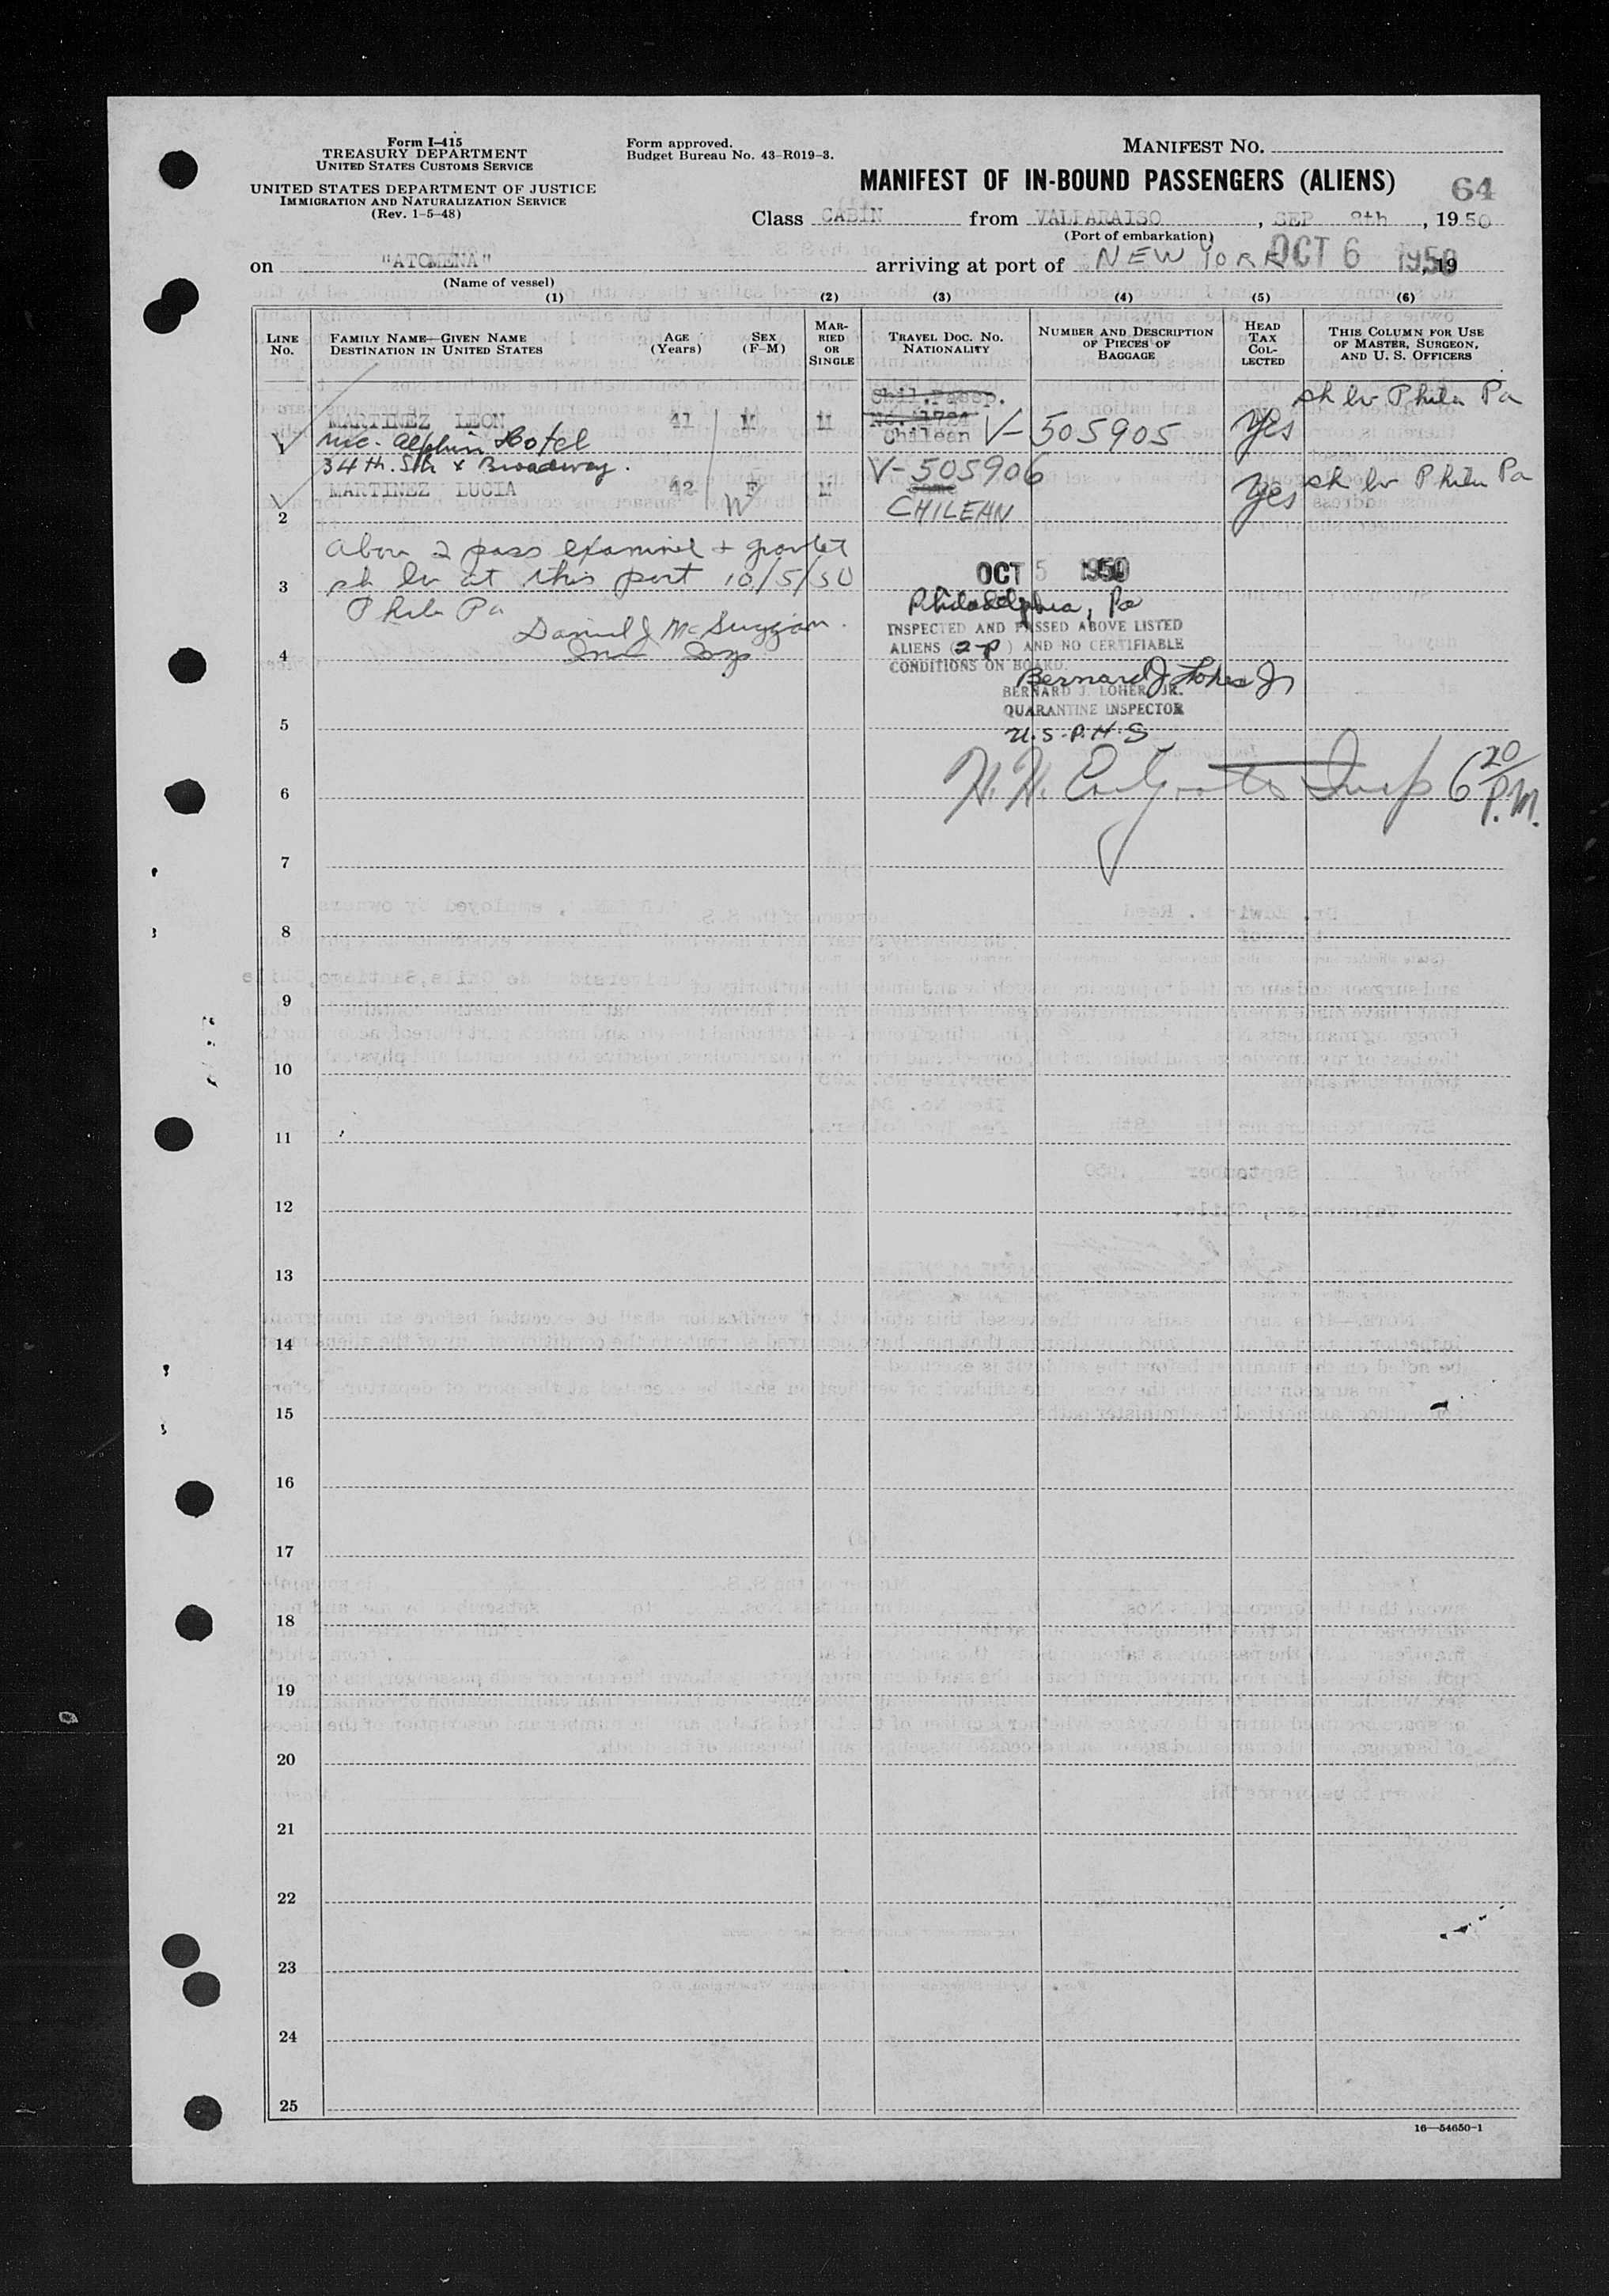 Form I-415
TREASURY DEPARTMENT
UNITED STATES CUSTOMS SERVICE
UNITED STATES DEPARTMENT OF JUSTICE
IMMIGRATION AND NATURALIZATION SERVICE
(Rev. 1-5-48)
Form approved.
Budget Bureau No. 43-R019-3.
MANIFEST NO.
MANIFEST OF IN-BOUND PASSENGERS (ALIENS) 64
Class CABIN from VALPARAISO, SEP 8th, 1950
(Port of embarkation)
on "ATOMENA" arriving at port of NEW YORK OCT 6 1950, 19
(Name of vessel)
(1) (2) (3) (4) (5) (6)
LINE No.
FAMILY NAME—GIVEN NAME
DESTINATION IN UNITED STATES
AGE (Years)
SEX (F-M)
MARRIED OR SINGLE
TRAVEL DOC. NO.
NATIONALITY
NUMBER AND DESCRIPTION OF PIECES OF BAGGAGE
HEAD TAX COLLECTED
THIS COLUMN FOR USE OF MASTER, SURGEON, AND U. S. OFFICERS
Chil. Passp. sh lv Phila Pa
MARTINEZ LEON 41 M M No. 1724 Yes
Mc. Alphin Hotel Chilean V-505905
34th. Str & Broadway.
V-505906 sh lv Phila Pa
MARTINEZ LUCIA 42 F M same Yes
2 W CHILEAN
Above 2 pass examined + granted
3 sh lv at this port 10/5/50
Phila Pa
Daniel J
4 Imm Insp
OCT 5 1950
Philadelphia, Pa
INSPECTED AND PASSED ABOVE LISTED
ALIENS (2-p) AND NO CERTIFIABLE
CONDITIONS ON BOARD.
Bernard J Loher Jr
BERNARD J. LOHER, JR.
QUARANTINE INSPECTOR
5 U.S.P.H.S
6 Insp 6 20 P.M.
7
8
9
10
11
12
13
14
15
16
17
18
19
20
21
22
23
24
25
16—54650-1